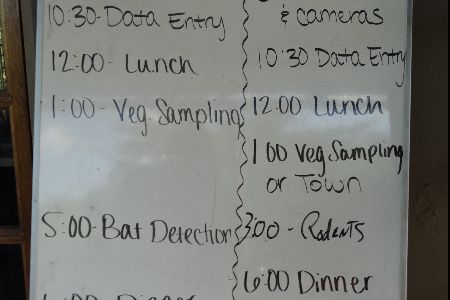 10:30-Data Entry
12:00- Lunch
1:00- Veg. Sampling
5:00-Bat Detection
6:00 Dinner
& cameras
10:30 Data Entry
12:00 Lunch
1 00 Veg Sampling
or Town
3:00 - Rodents
6:00 Dinner